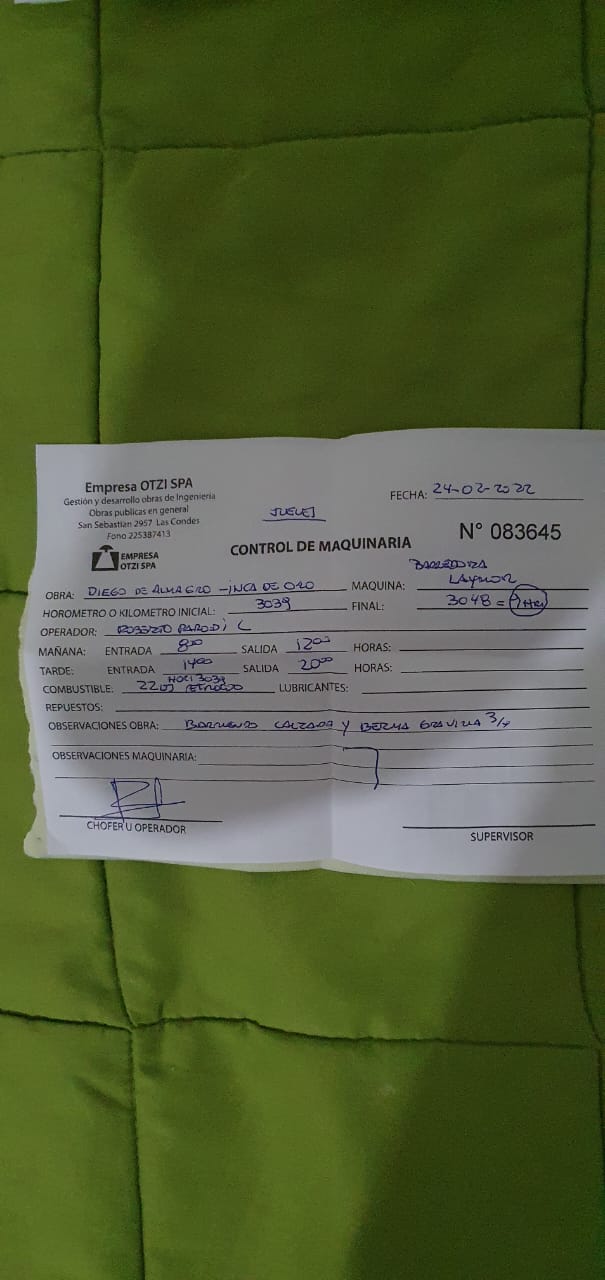 Empresa OTZI SPA
Gestión y desarrollo obras de Ingenieria
Obras publicas en general
San Sebastian 2957 Las Condes
Fono 225387413
EMPRESA
OTZI SPA
FECHA: 24-02-2022
JUEVES
CONTROL DE MAQUINARIA
N° 083645
OBRA: DIEGO DE ALMAGRO - INCA DE ORO MAQUINA: BARREDORA LAYMOR
HOROMETRO O KILOMETRO INICIAL: 3039 FINAL: 3048 =
OPERADOR: ROBERTO PARODI C
MAÑANA: ENTRADA 8:00 SALIDA 12:00 HORAS:
TARDE: ENTRADA 14:00 SALIDA 20:00 HORAS:
COMBUSTIBLE: 3039 LUBRICANTES:
REPUESTOS:
OBSERVACIONES OBRA: BARRIENDO CALZADA Y BERMA GRAVILLA 3/4
OBSERVACIONES MAQUINARIA:
CHOFER U OPERADOR
SUPERVISOR